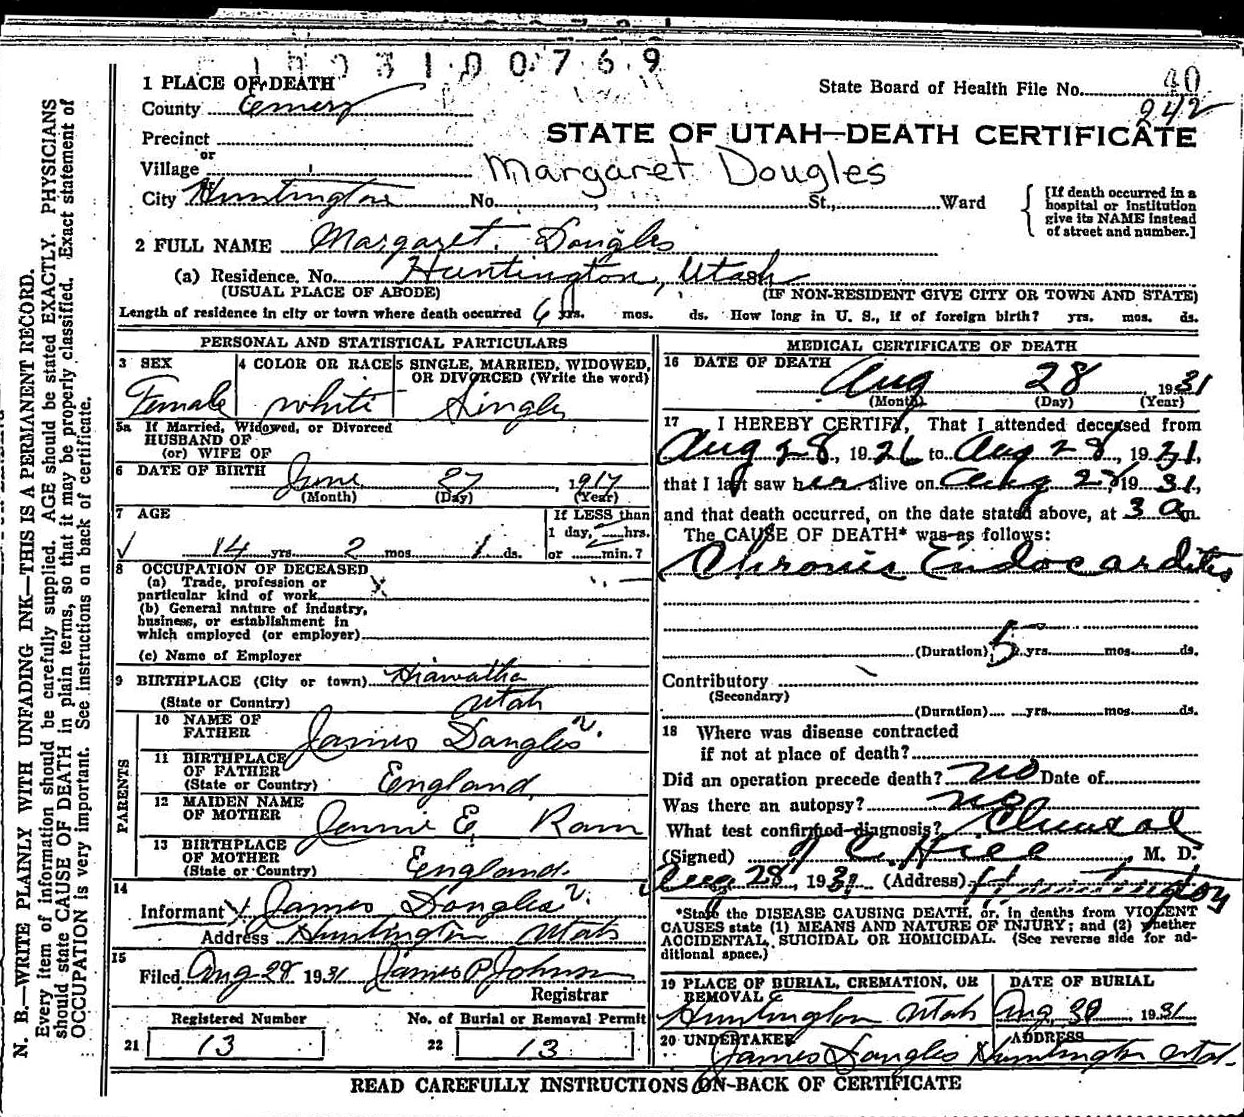 1 0 0 3 1 0 0 7 6 9
1 PLACE OF DEATH
State Board of Health File No. 40
County Emery
242
STATE OF UTAH—DEATH CERTIFICATE
Precinct
or
Village
Margaret Dougles
City Huntington No. , St., Ward
[If death occurred in a hospital or institution give its NAME instead of street and number.]
2 FULL NAME Margaret Dougles
(a) Residence. No. Huntington, Utah
(USUAL PLACE OF ABODE) (IF NON-RESIDENT GIVE CITY OR TOWN AND STATE)
Length of residence in city or town where death occurred 6 yrs. mos. ds. How long in U. S., if of foreign birth? yrs. mos. ds.
PERSONAL AND STATISTICAL PARTICULARS
3 SEX
Female
4 COLOR OR RACE
White
5 SINGLE, MARRIED, WIDOWED, OR DIVORCED (Write the word)
Single
5a If Married, Widowed, or Divorced
HUSBAND OF
(or) WIFE OF
6 DATE OF BIRTH June 27, 1917
(Month) (Day) (Year)
7 AGE
14 yrs. 2 mos. 1 ds.
If LESS than
1 day, hrs.
or min.?
8 OCCUPATION OF DECEASED
(a) Trade, profession or
particular kind of work X
(b) General nature of industry,
business, or establishment in
which employed (or employer)
(c) Name of Employer
9 BIRTHPLACE (City or town) Hiawatha
(State or Country) Utah
PARENTS
10 NAME OF FATHER James Dougles
11 BIRTHPLACE OF FATHER (State or Country) England
12 MAIDEN NAME OF MOTHER Jennie E.
13 BIRTHPLACE OF MOTHER (State or Country) England.
14
Informant James Dougles
Address Huntington Utah
15
Filed Aug 28 1931 James P Johnson
Registrar
Registered Number
21 13
No. of Burial or Removal Permit
22 13
MEDICAL CERTIFICATE OF DEATH
16 DATE OF DEATH
Aug 28 1931
(Month) (Day) (Year)
17 I HEREBY CERTIFY, That I attended deceased from
Aug 28, 1926 to Aug 28, 1931,
that I last saw her alive on Aug 28, 1931,
and that death occurred, on the date stated above, at 3 a m.
The CAUSE OF DEATH* was as follows:
Chronic Endocarditis
(Duration) 5 yrs. mos. ds.
Contributory
(Secondary)
(Duration) yrs. mos. ds.
18 Where was disease contracted
if not at place of death?
Did an operation precede death? no Date of
Was there an autopsy? no
What test confirmed diagnosis? Clinical
(Signed) C. Hill, M. D.
Aug 28, 1931 (Address) Huntington
*State the DISEASE CAUSING DEATH, or, in deaths from VIOLENT
CAUSES state (1) MEANS AND NATURE OF INJURY; and (2) whether
ACCIDENTAL, SUICIDAL OR HOMICIDAL. (See reverse side for ad-
ditional space.)
19 PLACE OF BURIAL, CREMATION, OR REMOVAL
Huntington Utah
DATE OF BURIAL
Aug 30 1931
20 UNDERTAKER
James Dougles
ADDRESS
Huntington Utah.
READ CAREFULLY INSTRUCTIONS ON BACK OF CERTIFICATE
N. B.—WRITE PLAINLY WITH UNFADING INK—THIS IS A PERMANENT RECORD.
Every item of information should be carefully supplied. AGE should be stated EXACTLY. PHYSICIANS
should state CAUSE OF DEATH in plain terms, so that it may be properly classified. Exact statement of
OCCUPATION is very important. See instructions on back of certificate.